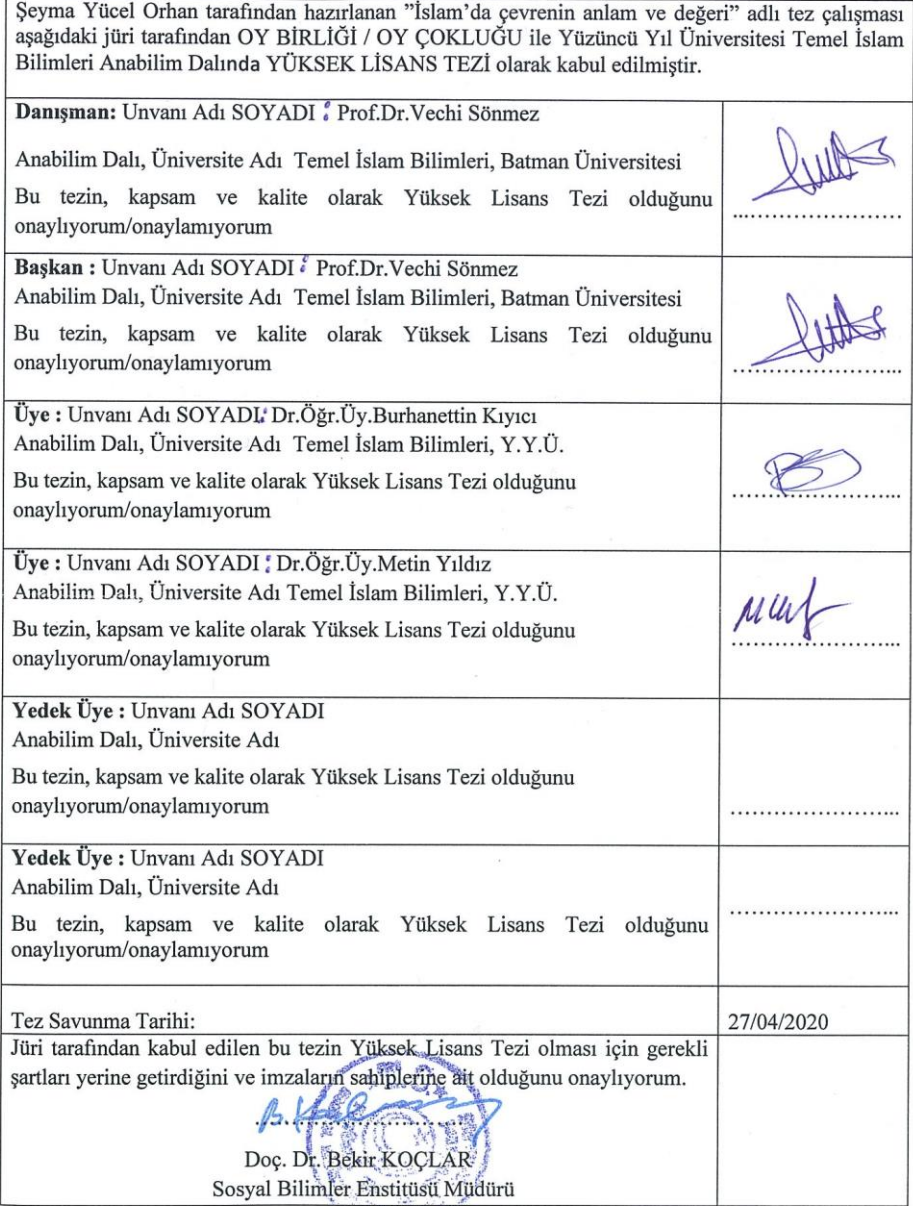 Şeyma Yücel Orhan tarafından hazırlanan ”İslam’da çevrenin anlam ve değeri” adlı tez çalışması
aşağıdaki jüri tarafından OY BİRLİĞİ / OY ÇOKLUĞU ile Yüzüncü Yıl Üniversitesi Temel İslam
Bilimleri Anabilim Dalında YÜKSEK LİSANS TEZİ olarak kabul edilmiştir.
Danışman: Unvanı Adı SOYADI : Prof.Dr.Vechi Sönmez
Anabilim Dalı, Üniversite Adı Temel İslam Bilimleri, Batman Üniversitesi
Bu tezin, kapsam ve kalite olarak Yüksek Lisans Tezi olduğunu
onaylıyorum/onaylamıyorum
........................
Başkan : Unvanı Adı SOYADI : Prof.Dr.Vechi Sönmez
Anabilim Dalı, Üniversite Adı Temel İslam Bilimleri, Batman Üniversitesi
Bu tezin, kapsam ve kalite olarak Yüksek Lisans Tezi olduğunu
onaylıyorum/onaylamıyorum
........................
Üye : Unvanı Adı SOYADI: Dr.Öğr.Üy.Burhanettin Kıyıcı
Anabilim Dalı, Üniversite Adı Temel İslam Bilimleri, Y.Y.Ü.
Bu tezin, kapsam ve kalite olarak Yüksek Lisans Tezi olduğunu
onaylıyorum/onaylamıyorum
........................
Üye : Unvanı Adı SOYADI : Dr.Öğr.Üy.Metin Yıldız
Anabilim Dalı, Üniversite Adı Temel İslam Bilimleri, Y.Y.Ü.
Bu tezin, kapsam ve kalite olarak Yüksek Lisans Tezi olduğunu
onaylıyorum/onaylamıyorum
........................
Yedek Üye : Unvanı Adı SOYADI
Anabilim Dalı, Üniversite Adı
Bu tezin, kapsam ve kalite olarak Yüksek Lisans Tezi olduğunu
onaylıyorum/onaylamıyorum
........................
Yedek Üye : Unvanı Adı SOYADI
Anabilim Dalı, Üniversite Adı
Bu tezin, kapsam ve kalite olarak Yüksek Lisans Tezi olduğunu
onaylıyorum/onaylamıyorum
........................
Tez Savunma Tarihi: 27/04/2020
Jüri tarafından kabul edilen bu tezin Yüksek Lisans Tezi olması için gerekli
şartları yerine getirdiğini ve imzaların sahiplerine ait olduğunu onaylıyorum.
........................
Doç. Dr. Bekir KOÇLAR
Sosyal Bilimler Enstitüsü Müdürü